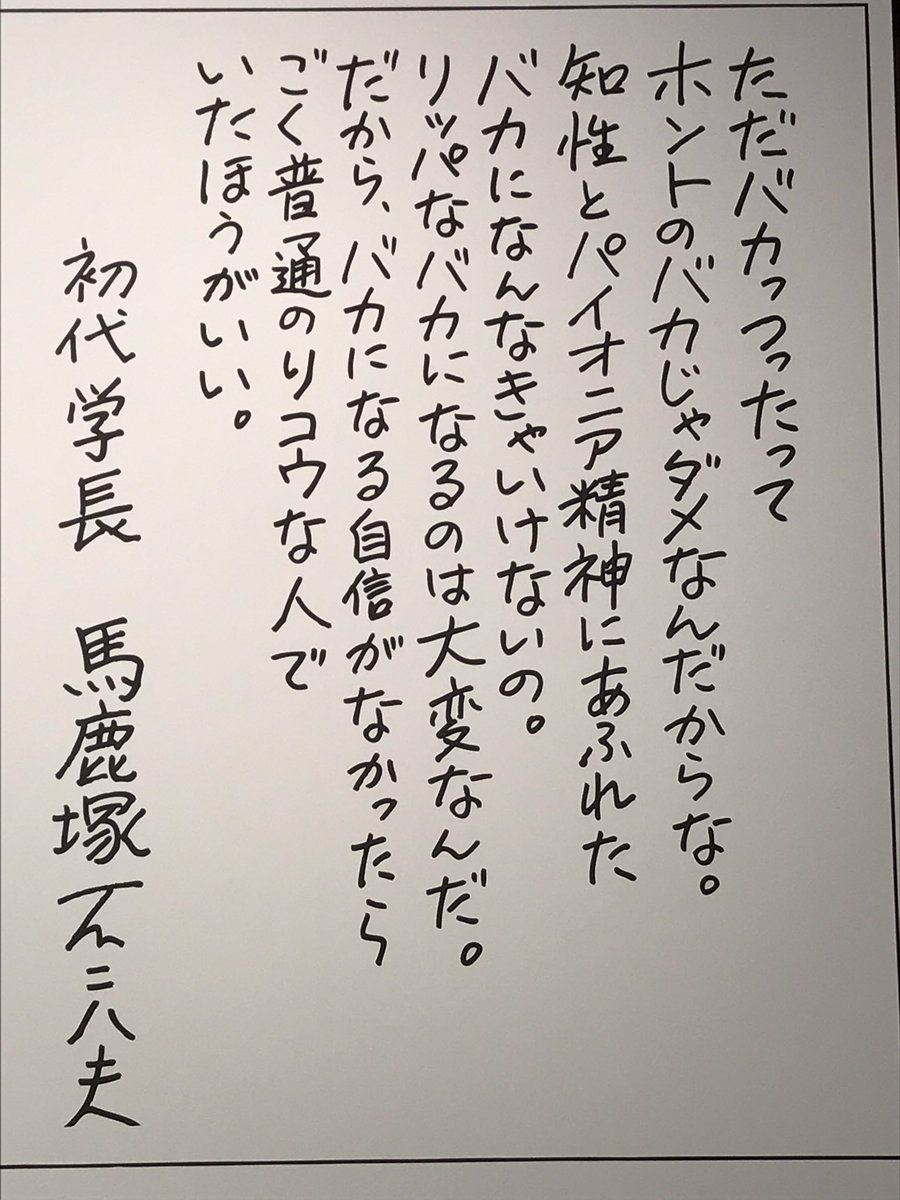 ただバカっつったって
ホントのバカじゃダメなんだからな。
知性とパイオニア精神にあふれた
バカになんなきゃいけないの。
リッパなバカになるのは大変なんだ。
だから、バカになる自信がなかったら
ごく普通のリコウな人で
いたほうがいい。
初代学長　馬鹿塚不二八夫